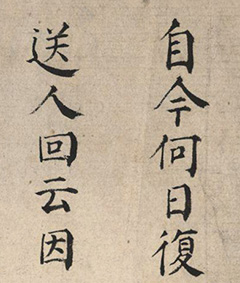 自今何日復
送人回云因